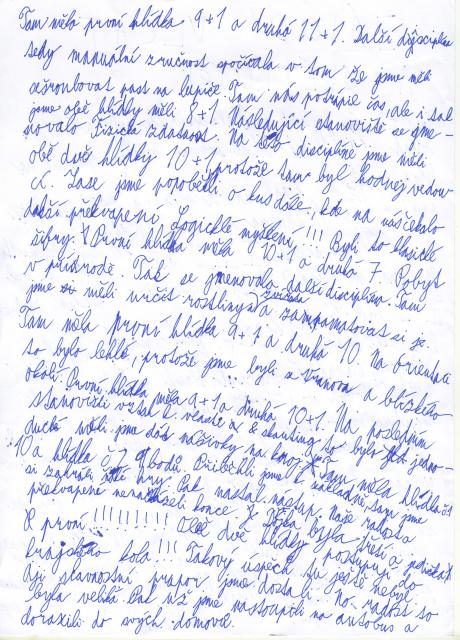 Tam měla první hlídka 9+1 a druhá 11+1. Další disciplína
tedy manuální zručnost spočívala v tom že jsme měli
sešroubovat past na lupiče. Tam nás potrápil čas, ale i tak
jsme obě hlídky měli 8+1. Následující stanoviště se jme-
novalo Fyzická zdatnost. Na této disciplíně jsme měli
obě dvě hlídky 10+1, protože tam byl hodnej vedou-
cí. Zase jsme popoběhli o kus dáše, kde na nás čekalo
další překvapení Logické myšlení!!! Byli to klasické
šifry. První hlídka měla 10+1 a druhá 7. Pobyt
v přírodě. Tak se jmenovala další disciplína. Tam
jsme si měli určit rostliny a zvířata a zapamatovat si je.
Tam měla první hlídka 9+1 a druhá 10. Na orientaci
to bylo lehké, protože jsme byli z Vranova a blízkého
okolí. První hlídka měla 9+1 a druhá 10+1. Na posledním
stanovišti vztah k vlasti a skautingu to bylo jedno-
duché měli jsme dát názvy na Tam měla hlídka
10 a hlídka č. 7 9 bodů. Přiběhli jsme k základně, tam jsme
si zahráli hry. Pak nastal nástup. Naše radost a
překvapení konce. byla třetí a
R první!!!!!!!!! Obě dvě hlídky postupují do
krajského kola!!! Takový úspěch tu ještě nebyl
a slavnostní prapor jsme dostali. No radost to
byla veliká. Pak už jsme nastoupili na autobus a
dorazili do svých domovů.